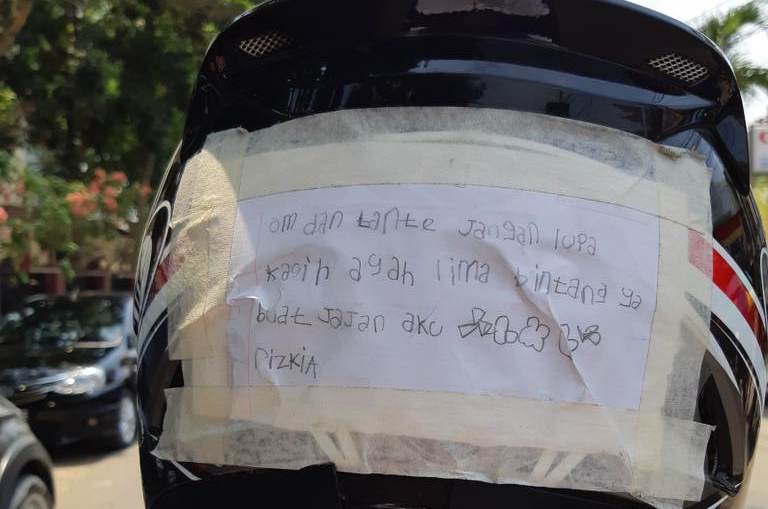 om dan tante jangan lupa
kasih ayah lima bintang ya
buat jajan aku
rizkiA